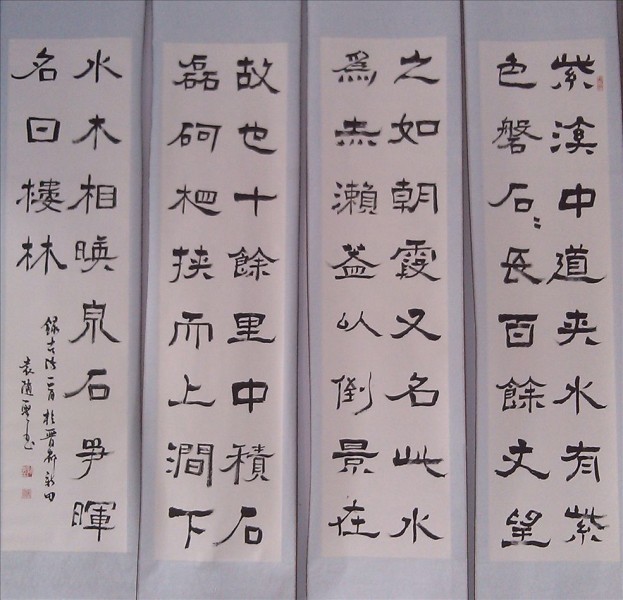 紫溪中道夹水有紫
色磐石〻長百餘丈望
之如朝霞又名此水
爲赤瀬盖以倒景在
故也十餘里中積石
磊砢相挟而上澗下
水木相暎泉石爭暉
名曰樓林
錄古於晋都新田
袁随書